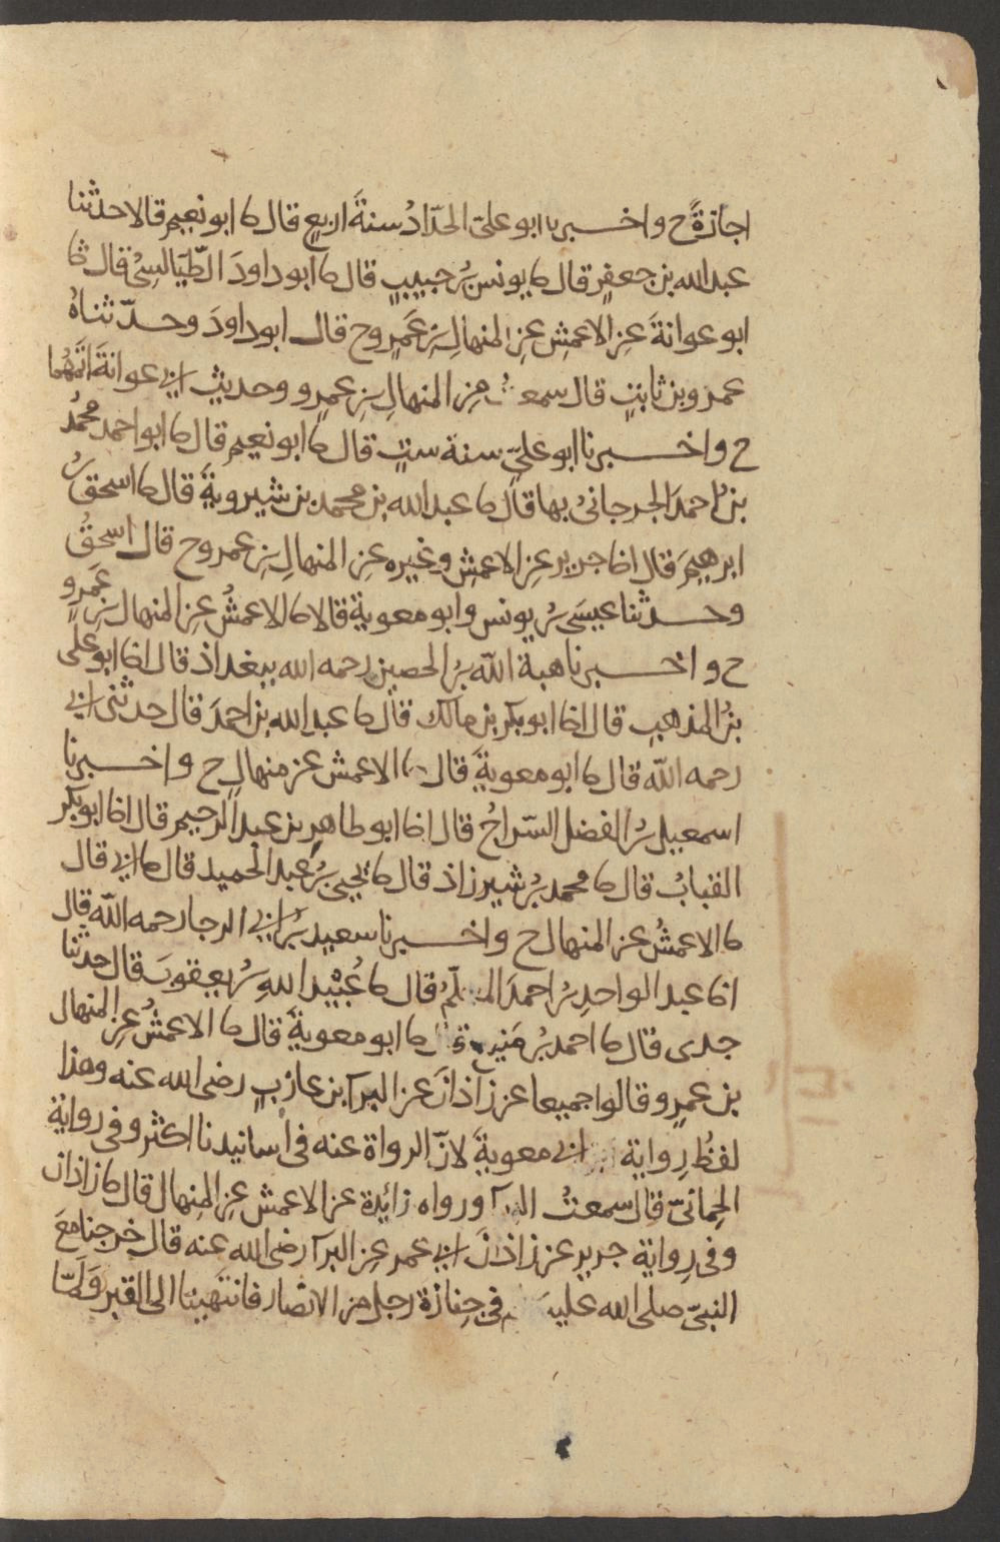 اجازةً ح واخبرنا ابو علىّ الحدّادُ سنةَ اربعٍ قال نا ابو نعيم قالا حدثنا
عبد الله بن جعفرٍ قال نا يونس بنُ حبيبٍ قال نا ابو داودَ الطّيَالسِىُّ قال ثنا
ابو عوانةَ عنِ الاعمشِ عنِ المنهالِ بنِ عَمرٍو ح قال ابو داودَ وحدّثناهُ
عمرو بن ثابتٍ قال سمعتُ من المنهالِ بنِ عمرٍو وحديثُ ابى عوانةَ اتمّهُما
ح واخبرنا ابو علىٍّ سنة ستٍ قال نا ابو نعيم قال نا ابو احمد محمدُ
بنُ احمدَ الجرجانىُّ بها قال نا عبد الله بن محمد بن شيرويةَ قال نا اسحقُ بنُ
ابرهيمَ قال انا جرير عنِ الاعمشِ وغيره عنِ المنهالِ بنِ عمرو ح قال اسحقُ
وحدثنا عيسَى بنُ يونس وابو معوية قالا نا الاعمشُ عنِ المنهال بنِ عَمرٍو
ح واخبرنا هبة الله بنُ الحصين رحمه الله ببغداذ قال انا ابو على
بنُ المذهبِ قال انا ابو بكر بن مالك قال نا عبد الله بن احمدَ قال حدثنى ابى
رحمه الله قال نا ابو معويةَ قال نا الاعمش عن منهالٍ ح واخبرنا
اسمعيل بنُ الفضل السّراجُ قال انا ابو طاهرِ بن عبد الرحيم قال انا ابو بكر
القبابُ قال نا محمد بنُ شيرزاذ قال نا يحيى بنُ عبد الحميد قال نا ابى قال
نا الاعمشُ عن المنهال ح واخبرنا سعيد بنُ ابى الرجا رحمه الله قال
انا عبد الواحدِ بنُ احمدَ المعلّمُ قال نا عُبَيْد اللهِ بنُ يعقوبَ قال حدثنا
جدى قال نا احمد بنُ مَنيعٍ قال نا ابو معويةَ قال نا الاعمشُ عنِ المنهال
بن عمرٍو قالوا جميعا عن زَاذانَ عن البرآء بن عازبٍ رضى الله عنه وهذا
لفظُ رِواية ابى معويةَ لانّ الرواة عنه فى اسانيدنا اكثر وفى رواية
الحِمانىّ قال سمعتُ البرآ ورواه زائدة عن الاعمش عنِ المنهال قال نا زاذان
وفى رِواية جرير عن زاذانَ ابى عمر عن البرآ رضى الله عنه قال خرجنا معَ
النبىّ صلى الله عليه فى جِنازة رجل من الانصار فانتهينا الى القبر ولَمّا